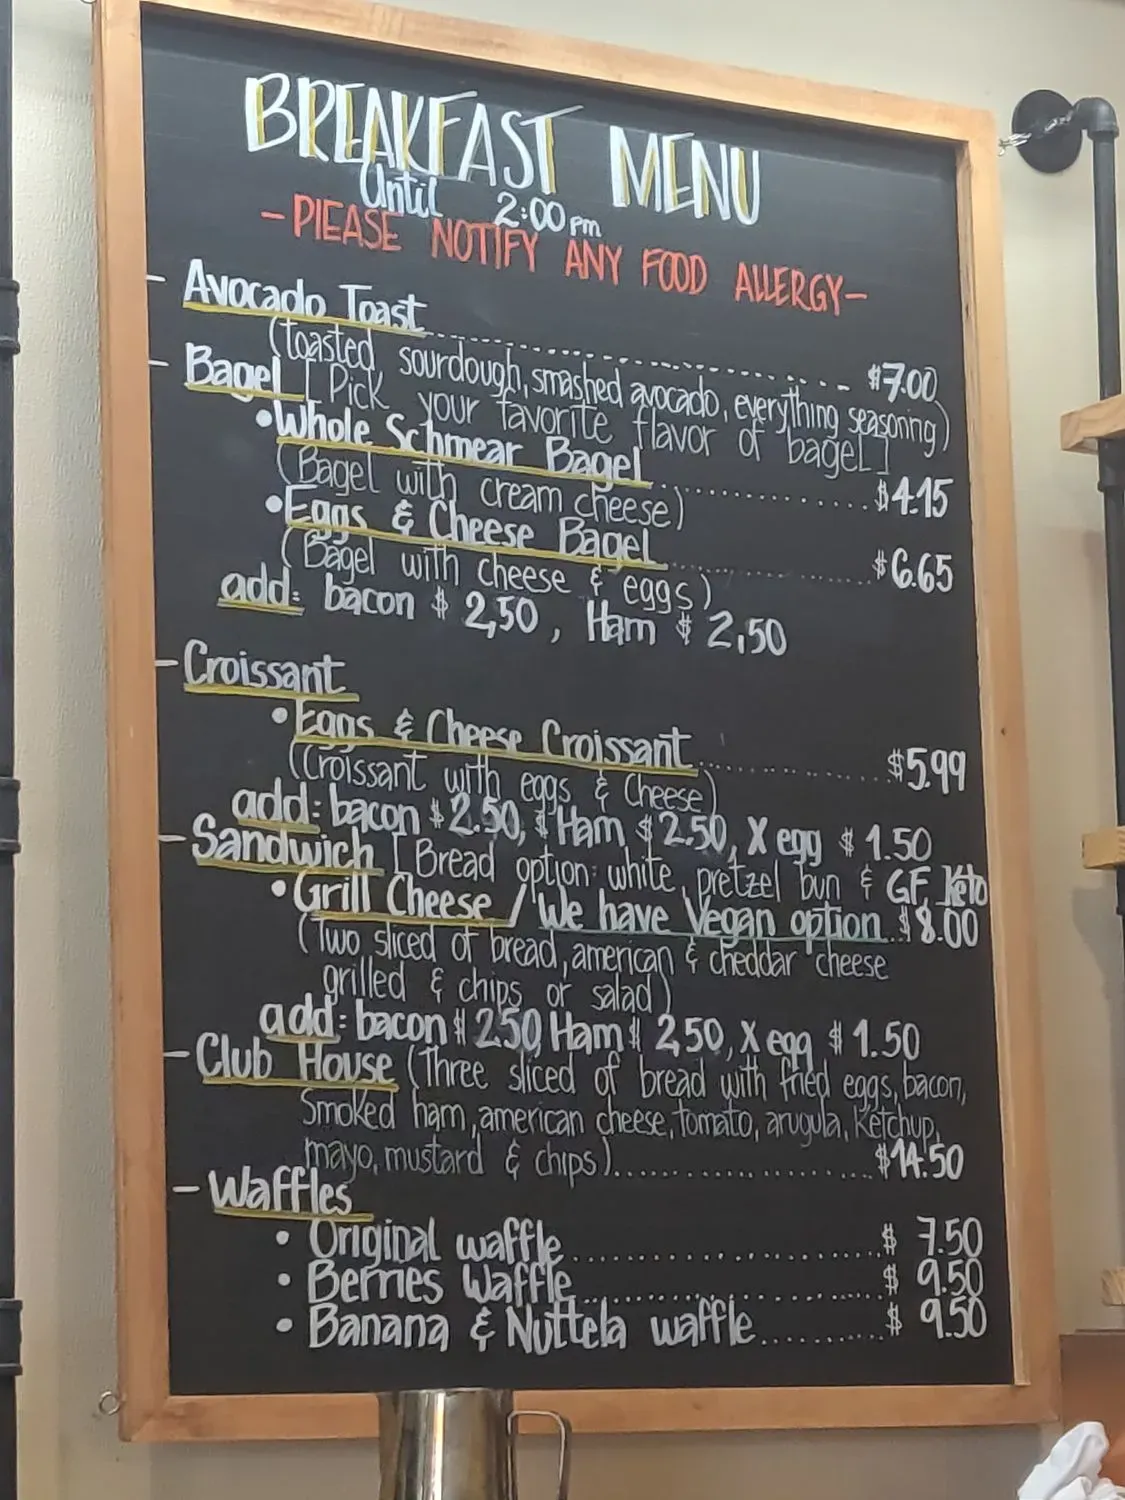 BREAKFAST MENU
Until 2:00 pm
-PLEASE NOTIFY ANY FOOD ALLERGY-
- Avocado Toast ---------- $7.00
(toasted, sourdough, smashed avocado, everything seasoning)
- Bagel [Pick your favorite flavor of bagel]
•Whole Schmear Bagel.................$4.15
(Bagel with cream cheese)
•Eggs & Cheese Bagel.................$6.65
(Bagel with cheese & eggs)
add: bacon $ 2,50, Ham $ 2,50
-Croissant
•Eggs & Cheese Croissant.................$5.99
(Croissant with eggs & Cheese)
add: bacon $ 2.50, $ Ham $ 2.50, X egg $ 1.50
-Sandwich [Bread option: white, pretzel bun & GF, Keto
•Grill Cheese / We have Vegan option..$8.00
(Two sliced of bread, american & cheddar cheese
grilled & chips or salad)
add: bacon $ 2.50, Ham $ 2,50, X egg $ 1.50
-Club House (Three sliced of bread with fried eggs, bacon,
Smoked ham, american cheese, tomato, arugula, Ketchup,
mayo, mustard & chips).................$14.50
- Waffles
• Original waffle.................$ 7.50
• Berries Waffle.................$ 9.50
• Banana & Nuttela waffle..........$ 9.50